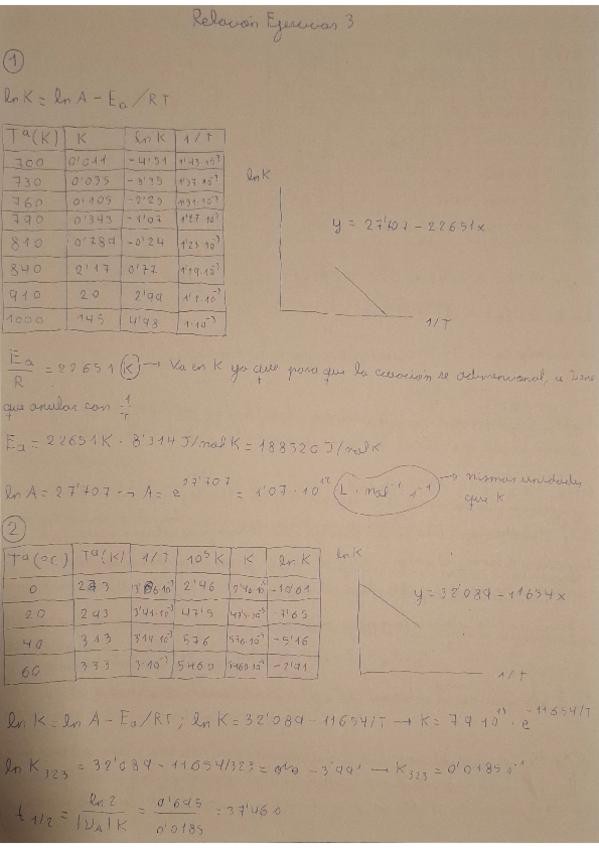 Relación Ejercicios 3
1
ln K = ln A - Ea/RT
Tª(K) K ln K 1/T
700 0'011 -4'51 1'43·10⁻³
730 0'035 -3'35 1'37·10⁻³
760 0'105 -2'25 1'31·10⁻³
790 0'343 -1'07 1'27·10⁻³
810 0'789 -0'24 1'23·10⁻³
840 2'17 0'77 1'19·10⁻³
910 20 2'99 1'1·10⁻³
1000 145 4'98 1·10⁻³
ln K
y = 27'707 - 22651x
1/T
Ea/R = 22651 K → Va en K ya que para que la ecuación se adimensional, se tiene
que anular con 1/T
Ea = 22651 K · 8'314 J/mol K = 188320 J/mol K
ln A = 27'707 → A = e^27'707 = 1'07·10¹² L·mol⁻¹ s⁻¹ → mismas unidades
que K
2
Tª(ºC) Tª(K) 1/T 10⁵K K ln K
0 273 2'46 -10'61
20 293 3'41·10⁻³ 47'5 -7'65
40 313 3'19·10⁻³ 576 576·10⁻⁵ -5'16
60 333 3·10⁻³ 5460 5460·10⁻⁵ -2'91
ln K
y = 32'089 - 11654x
1/T
ln K = ln A - Ea/RT ; ln K = 32'089 - 11654/T → K = 79·10¹³ · e^-11654/T
ln K₃₂₃ = 32'089 - 11654/323 = -3'991 → K₃₂₃ = 0'0185 s⁻¹
t 1/2 = ln 2 / |νA| K = 0'693 / 0'0185 = 37'46 s